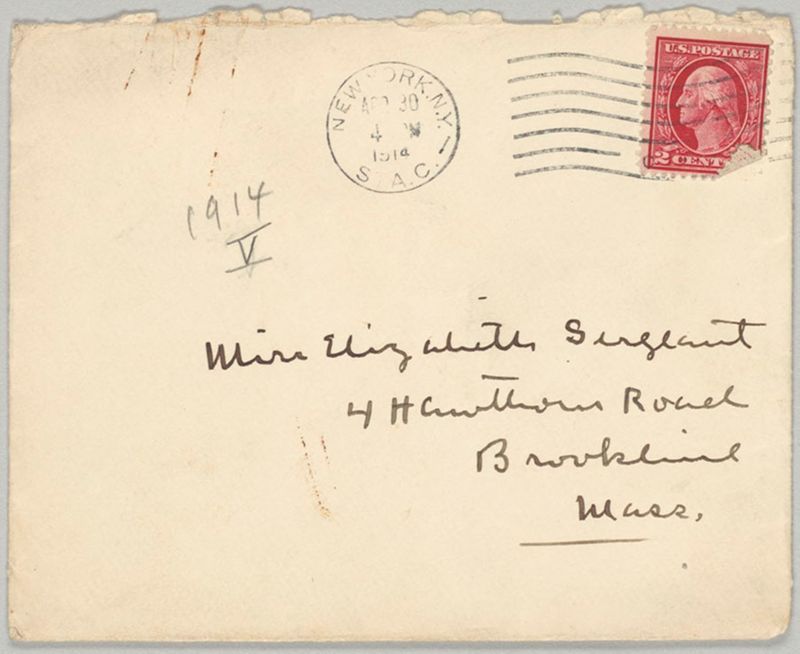 NEW YORK, N.Y.
APR 30
4 PM
1914
S. A. C.
U.S. POSTAGE
2 CENT
1914
V
Miss Elizabeth Sergeant
4 Hawthorne Road
Brookline
Mass.